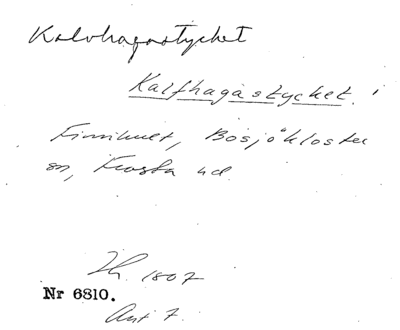 Kalvhagastycket
Kalfhagastycket.
Finnhult, Bosjökloster
sn, Frosta hd
1807
Nr 6810.
Avt 7.